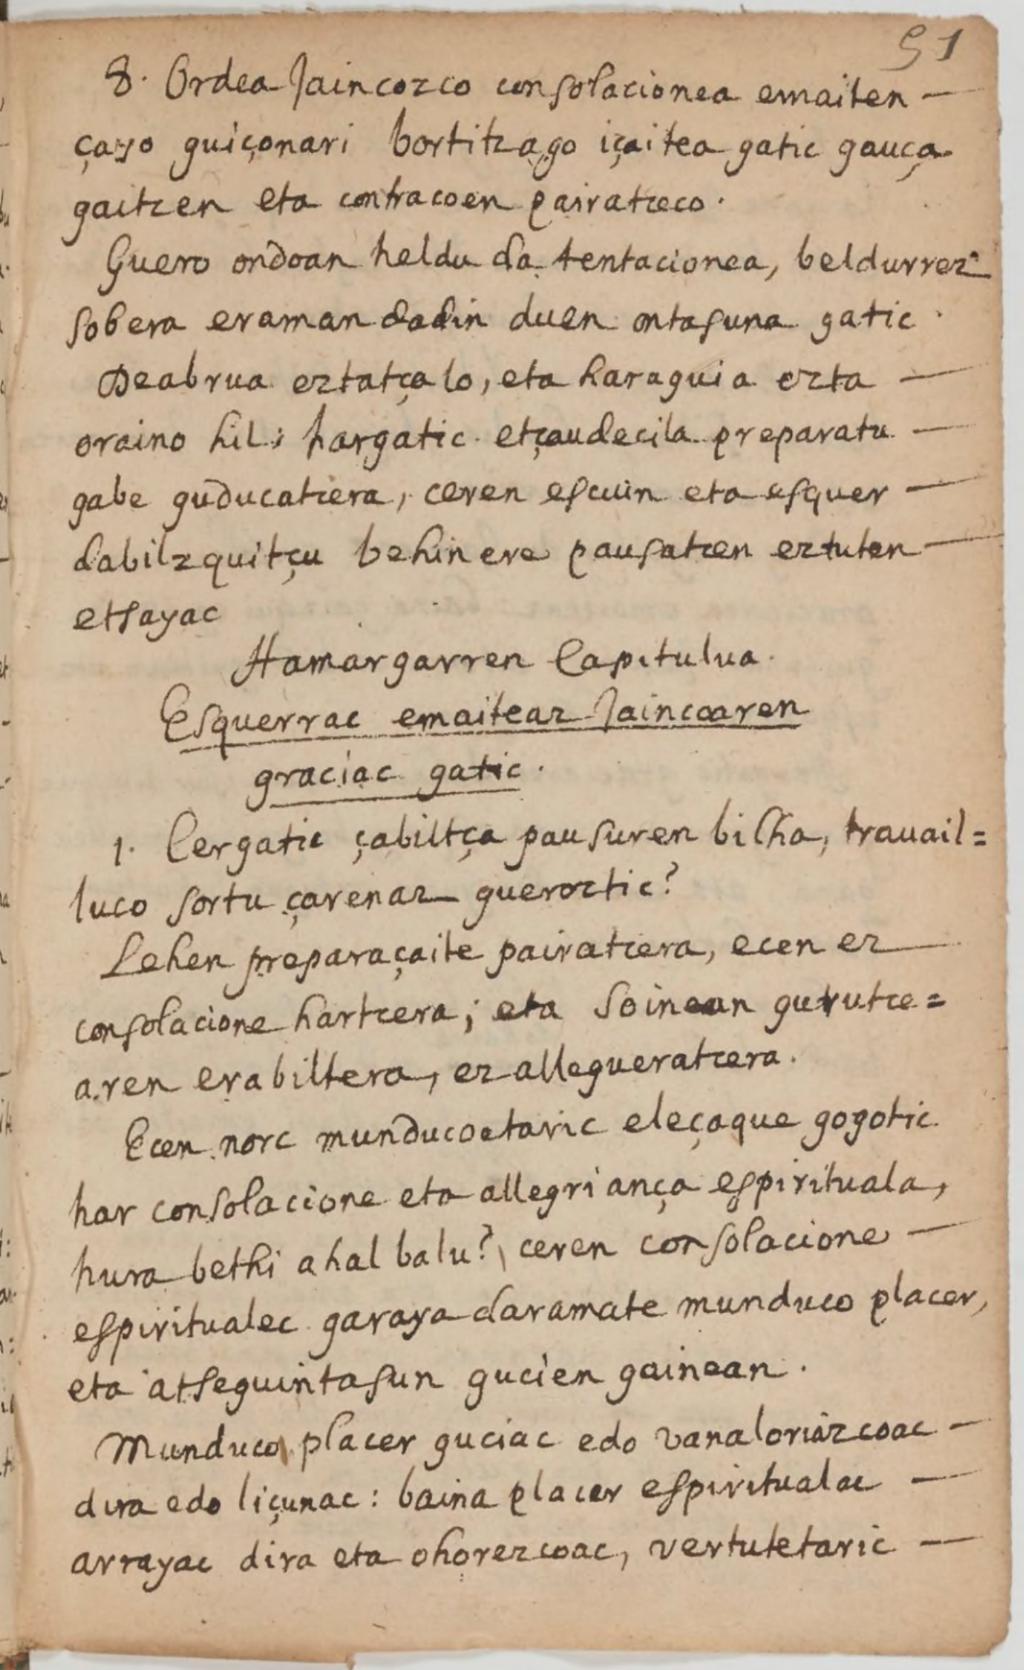 51
8. Ordea Jaincozco consolacionea emaiten —
çayo guiçonari bortitzago içaitea gatic gauça
gaitcen eta contracoen pairatceco.
Guero ondoan heldu da tentacionea, beldurrez
sobera eraman dadin duen ontasuna gatic.
Deabrua eztatçalo, eta haraguia ezta —
oraino hil; hargatic etçaudecila preparatu —
gabe guducatcera, ceren escuin eta esquer —
dabilzquitçu behinere pausatcen eztuten —
etsayac
Hamargarren Capitulua.
Esquerrac emaiteaz Jaincoaren
graciac gatic.
1. Cergatic çabiltça pausuren bilha, trauail=
luco sortu çarenaz gueroztic?
Lehen preparaçaite pairatcera, ecen ez —
consolacione hartcera; eta soinean gurutce=
aren erabiltera, ez allegueratcera.
Ecen norc munducoetaric eleçaque gogotic
har consolacione eta allegriança espirituala,
hura bethi ahal balu? ceren consolacione —
espiritualec garaya daramate munduco placer,
eta atseguintasun gucien gainean.
Munduco placer guciac edo vanaloriazcoac —
dira edo liçunac: baina placer espiritualac —
arrayac dira eta ohorezcoac, vertutetaric —